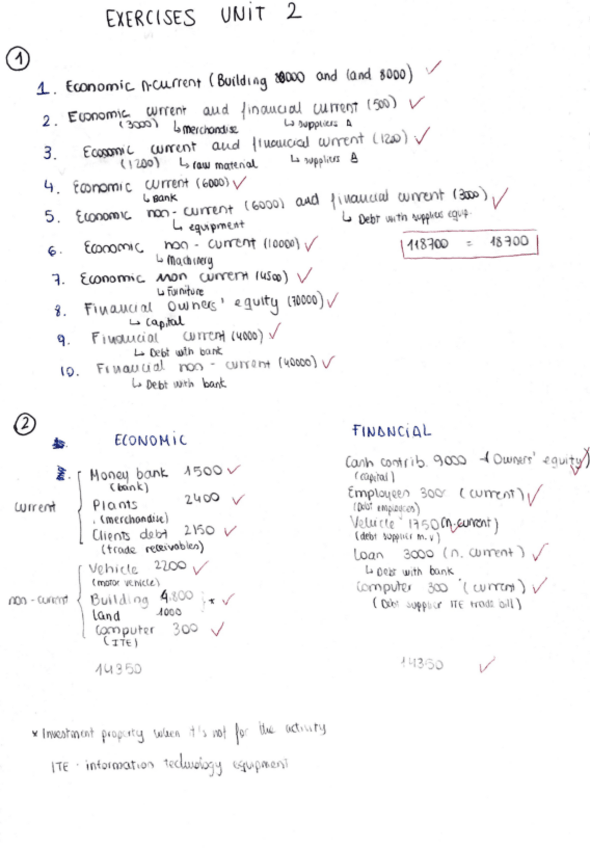 EXERCISES UNIT 2
①
1. Economic n-current (Building 88000 and land 8000) ✓
2. Economic current and financial current (500) ✓
(3000) ↳ merchandise ↳ suppliers A
3. Economic current and financial current (1200) ✓
(1200) ↳ raw material ↳ suppliers A
4. Economic current (6000) ✓
↳ Bank
5. Economic non-current (6000) and financial current (3000) ✓
↳ equipment ↳ Debt with supplies equip.
6. Economic non-current (10000) ✓
↳ Machinery
118700 = 18700
7. Economic non current (4500) ✓
↳ Furniture
8. Financial Owners' equity (70000) ✓
↳ Capital
9. Financial current (4000) ✓
↳ Debt with bank
10. Financial non-current (40000) ✓
↳ Debt with bank
②
ECONOMIC
current
Money bank 1500 ✓
(bank)
Plants 2400 ✓
(merchandise)
Clients debt 2150 ✓
(trade receivables)
non-current
Vehicle 2200 ✓
(motor vehicle)
Building 4.800 } * ✓
Land 1000
Computer 300 ✓
(ITE)
14350
FINANCIAL
Cash contrib. 9000 (Owners' equity) ✓
(capital)
Employees 300 (current) ✓
(Debt employees)
Vehicle 1750 (n.current) ✓
(debt supplier m.v)
Loan 3000 (n. current) ✓
↳ Debt with bank
Computer 300 (current) ✓
(Debt supplier ITE trade bill)
14350 ✓
* Investment property when it's not for the activity
ITE - information technology equipment